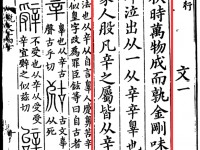 行
文一
秋時萬物成而孰金剛味
泣出从一从䇂䇂辠也
人股凡辛之屬皆从辛
法也从辛从自言辠人蹙鼻苦辛
字改爲罪臣鉉等曰自古者
辠也从辛
聲古乎切
古文辜
辤
不受也从辛从受受
辛宜辤之似茲切